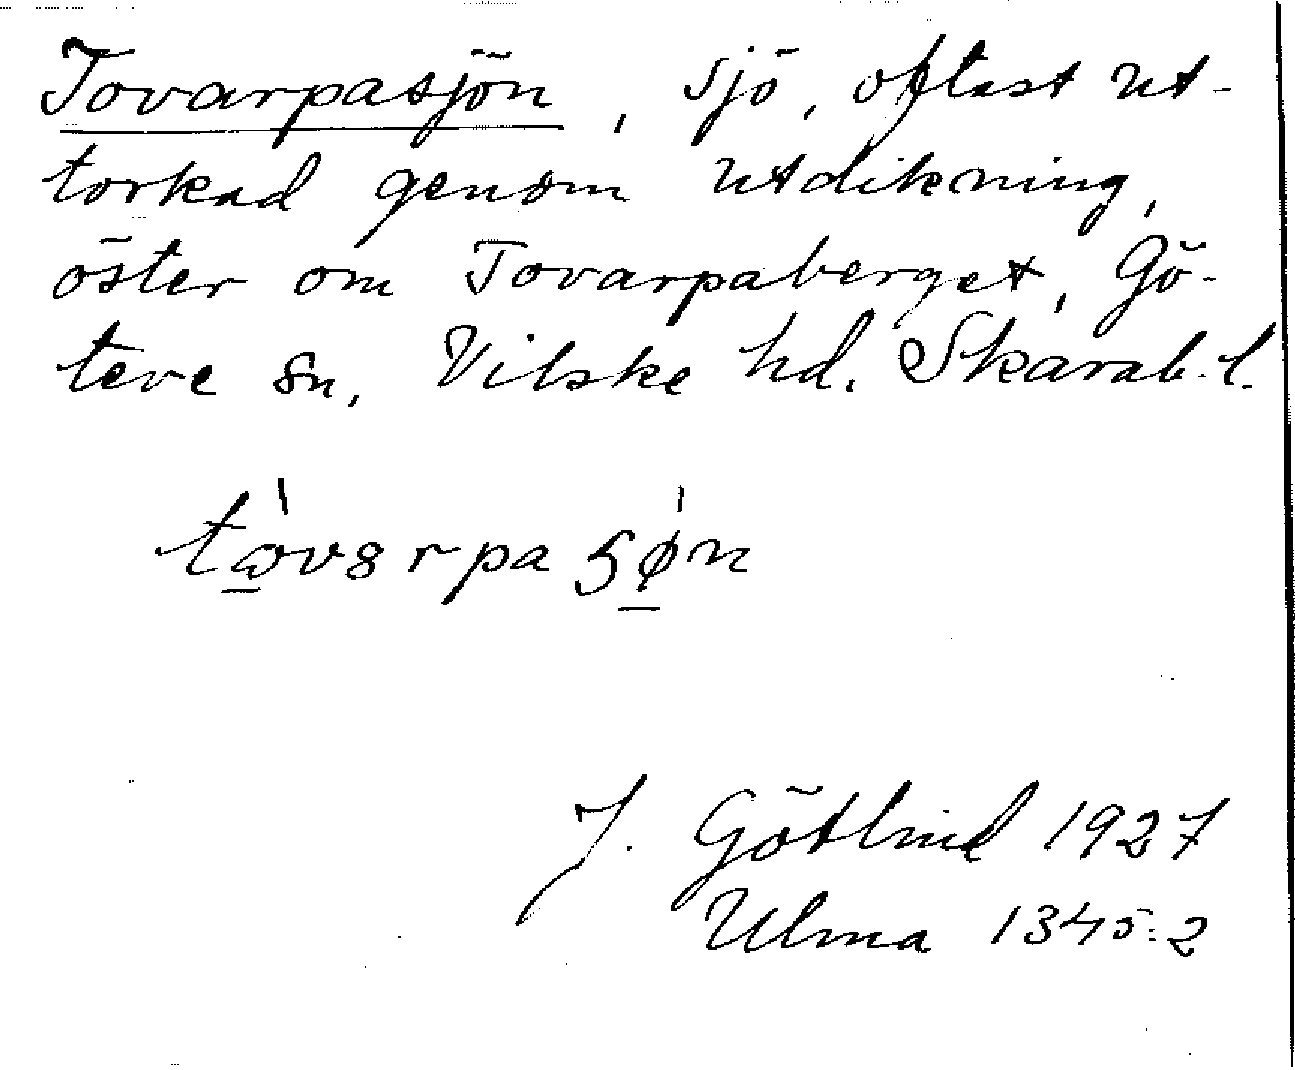 Tovarpasjön, sjö, oftast ut-
torkad genom utdikning,
öster om Tovarpaberget, Gö-
teve sn, Vilske hd. Skarab. l.
J. Götlind 1927
Ulma 1345:2